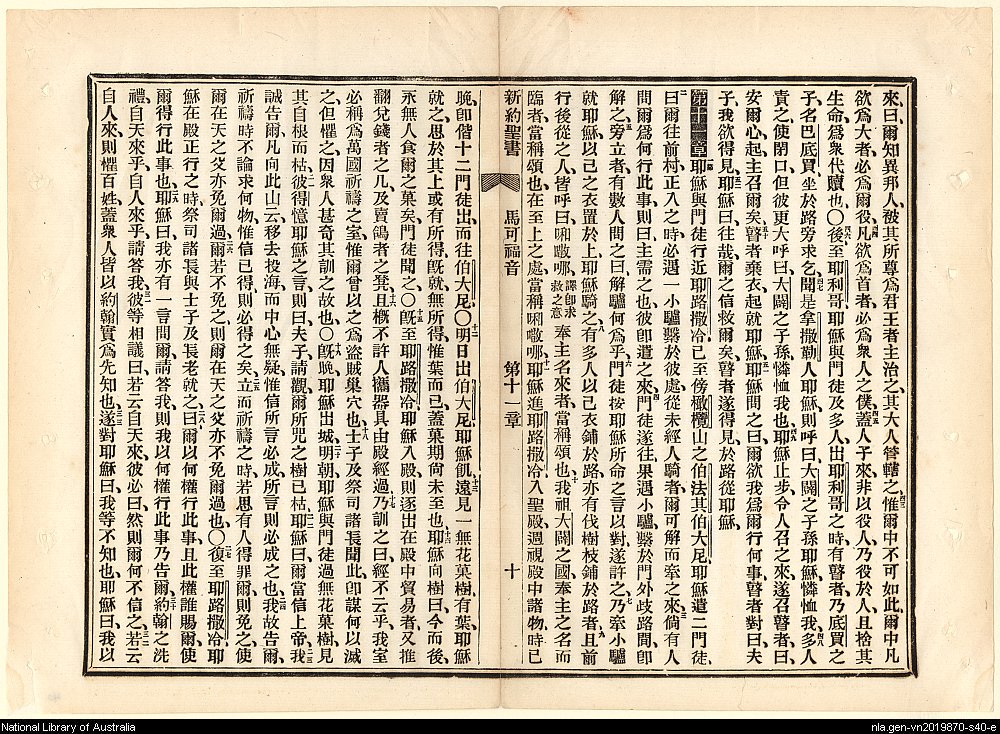 來、曰、爾知異邦人、被其所尊爲君王者主治之、其大人管轄之、惟爾中不可如此、爾中凡
欲爲大者、必爲爾役、凡欲爲首者、必爲衆人之僕、蓋人子來、非以役人、乃役於人、且捨其
生命、爲衆代贖也、〇後至耶利哥、耶穌與門徒及多人、出耶利哥之時、有瞽者、乃底買之
子、名巴底買、坐於路旁求乞、聞是拿撒勒人耶穌、則呼曰、大闢之子孫耶穌、憐恤我、多人
責之、使閉口、但彼更大呼曰、大闢之子孫、憐恤我也、耶穌止步、令人召之來、遂召瞽者曰、
安爾心、起、主召爾矣、瞽者棄衣、起就耶穌、耶穌問之曰、爾欲我爲爾行何事、瞽者對曰、夫
子、我欲得見、耶穌曰、往哉、爾之信救爾矣、瞽者遂得見、於路從耶穌、
第十一章 耶穌與門徒行近耶路撒冷、已至傍橄欖山之伯法其伯大尼、耶穌遣二門徒
曰、爾往前村、正入之時、必遇一小驢繫於彼處、從未經人騎者、爾可解而牽之來、倘有人
問爾爲何行此事、則曰、主需之也、彼卽遣之來、門徒遂往、果遇小驢繫於門外歧路間、卽
解之、旁立者、有數人問之曰、解驢何爲乎、門徒按耶穌所命之言以對、遂許之、乃牽小驢
就耶穌、以己之衣置於上、耶穌騎之、有多人以己衣鋪於路、亦有伐樹枝鋪於路者、且前
行後從之人、皆呼曰、㖠㗐哪、譯卽求救之意奉主名來者、當稱頌也、我祖大闢之國、奉主之名而
臨者、當稱頌也、在至上之處、當稱㖠㗐哪、耶穌進耶路撒冷、入聖殿、週視殿中諸物、時已
新約聖書 馬可福音 第十一章 十
晚、卽偕十二門徒出而往伯大尼、〇明日、出伯大尼、耶穌飢、遠見一無花菓樹有葉、耶穌
就之、思於其上或有所得、旣就、無所得、惟葉而已、蓋菓期尙未至也、耶穌向樹曰、今而後、
永無人食爾之菓矣、門徒聞之、〇旣至耶路撒冷、耶穌入殿、則逐出在殿中貿易者、又推
翻兌錢者之几、及賣鴿者之凳、且概不許人攜器具由殿經過、乃訓之曰、經不云乎、我室
必稱爲萬國祈禱之室、惟爾曾以之爲盜賊巢穴也、士子及祭司諸長聞此、卽謀何以滅
之、但懼之、因衆人甚奇其訓之故也、〇旣晚、耶穌出城、明朝、耶穌與門徒過無花菓樹、見
其自根而枯、彼得憶耶穌之言、則曰、夫子、請觀爾所咒之樹已枯、耶穌曰、爾當信上帝、我
誠告爾、凡向此山云、移去投海、而中心無疑、惟信所言必成、所言則必成之也、我故告爾、
祈禱時、不論求何物、惟信已得、則必得之矣、立而祈禱之時、若思有人得罪爾、則免之、使
爾在天之父、亦免爾過、爾若不免之、則爾在天之父、亦不免爾過也、〇復至耶路撒冷、耶
穌在殿正行之時、祭司諸長與士子及長老就之、曰、爾以何權行此事、且此權誰賜爾、使
爾得行此事也、耶穌曰、我亦有一言問爾、請答我、則我以何權行此事、乃告爾、約翰之洗
禮、自天來乎、自人來乎、請答我、彼等相議曰、若云自天來、彼必曰、然則爾何不信之、若云
自人來、則懼百姓、蓋衆人皆以約翰實爲先知也、遂對耶穌曰、我等不知也、耶穌曰、我以
National Library of Australia
nla.gen-vn2019870-s40-e